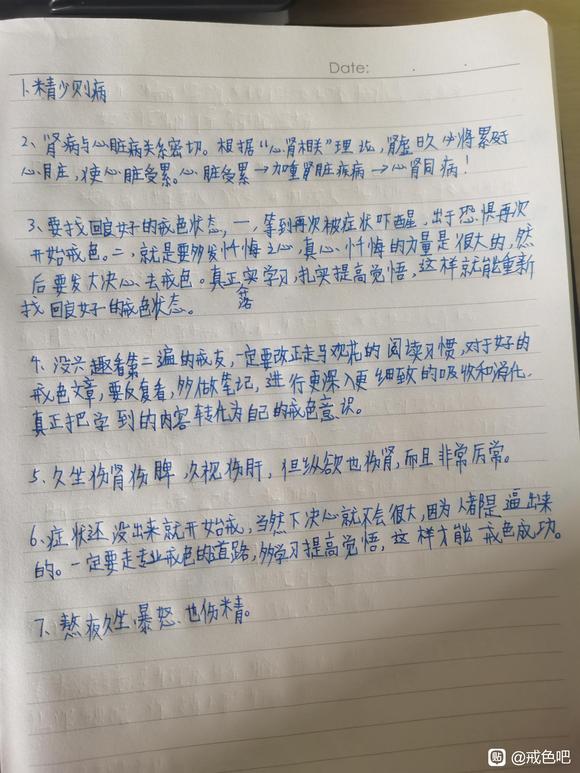 Date:
1.精少则病
2、肾病与心脏病关系密切。根据"心肾相关"理论,肾虚日久必将累好
心目庄,使心脏受累。心脏受累→加重肾脏疾病→心肾同病!
3、要找回良好的戒色状态,一,等到再次被症状吓醒,出于恐惧再次
开始戒色。二,就是要多发忏悔之心,真心忏悔的力量是很大的,然
后要发大决心去戒色。真正落实学习,扎实提高觉悟,这样就能重新
找回良好的戒色状态。
4、没兴趣看第二遍的戒友,一定要改正走马观花的阅读习惯,对于好的
戒色文章,要反复看,多做笔记,进行更深入更细致的吸收和消化.
真正把学到的内容转化为自己的戒色意识。
5、久坐伤肾伤脾,久视伤肝,但纵欲也伤肾,而且非常厉常。
6、症状还没出来就开始戒,当然下决心就不会很大,因为人都是逼出来
的。一定要走专业戒色的道路,多学习提高觉悟,这样才能戒色成功。
7、熬夜久坐.暴怒.也伤精。
贴 @戒色吧